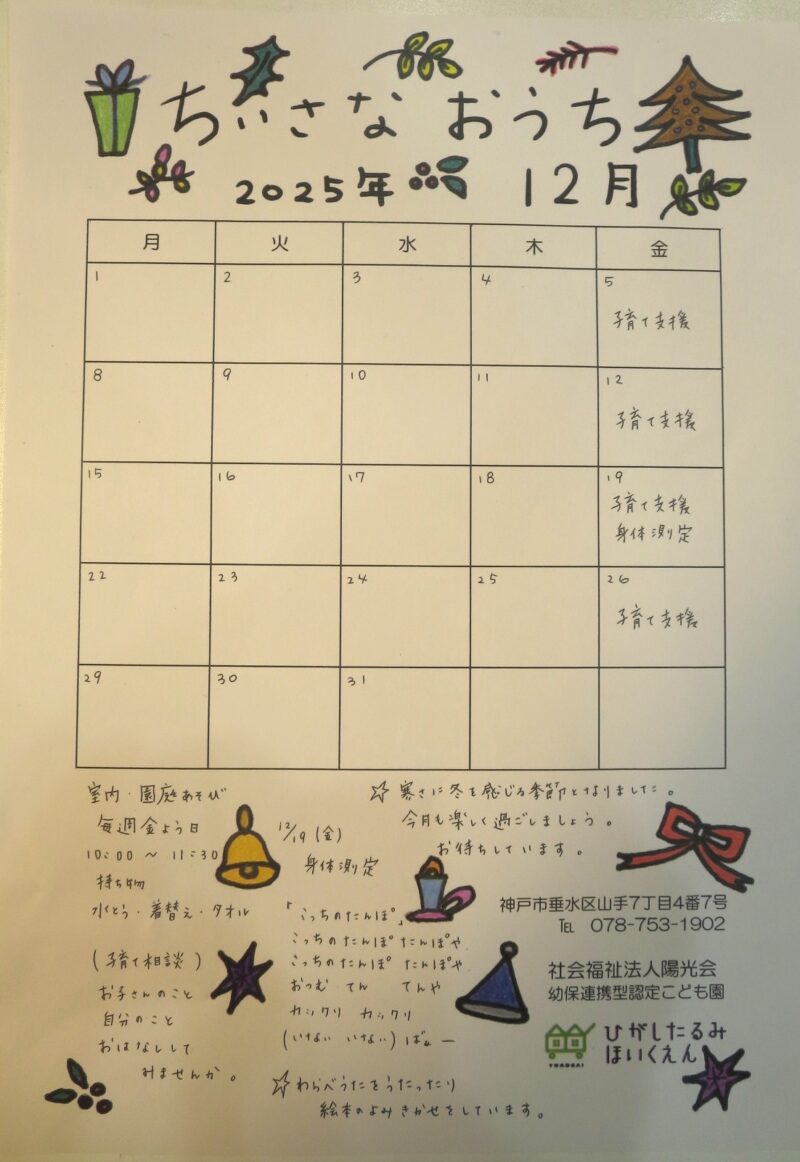 ちいさな おうち
2025年 12月
月 火 水 木 金
1 2 3 4 5
子育て支援
8 9 10 11 12
子育て支援
15 16 17 18 19
子育て支援
身体測定
22 23 24 25 26
子育て支援
29 30 31
室内・園庭あそび
毎週金よう日
10:00 〜 11:30
持ち物
水とう・着替え・タオル
(子育て相談)
お子さんのこと
自分のこと
おはなしして
みませんか。
☆ 寒さに冬を感じる季節となりました。
今月も楽しく過ごしましょう。
お待ちしています。
12/19(金)
身体測定
「こっちのたんぽ」
こっちのたんぽ たんぽや
こっちのたんぽ たんぽや
おつむ てん てんや
カックリ カックリ
(いない いない) ばぁー
☆わらべうたをうたったり
絵本のよみきかせをしています。
神戸市垂水区山手7丁目4番7号
℡ 078-753-1902
社会福祉法人陽光会
幼保連携型認定こども園
ひがしたるみ
ほいくえん